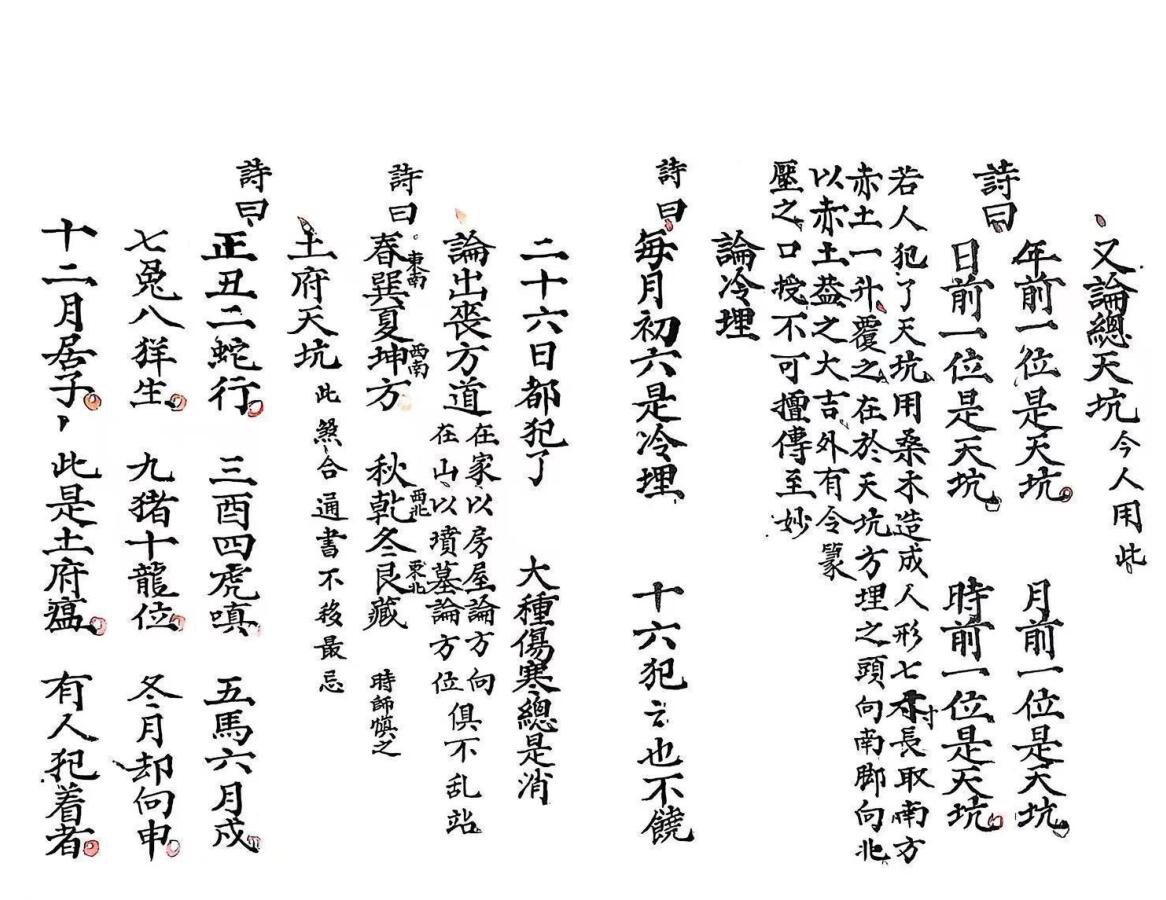 又論總天坑 今人用此
詩曰 年前一位是天坑 月前一位是天坑
日前一位是天坑 時前一位是天坑
若人犯了天坑用桑木造成人形七寸長取南方
赤土一升覆之在於天坑方埋之頭向南脚向北
以赤土蓋之大吉外有令篆
壓之口授不可擅傳至妙
論冷埋
詩曰 每月初六是冷埋 十六犯之也不饒
二十六日都犯了 大種傷寒總是消
論出喪方道 在家以房屋論方向 在山以墳墓論方位 俱不乱站
詩曰 春巽東南夏坤西南方 秋乾西北冬艮東北藏 時師慎之
土府天坑 此煞合通書不移最忌
詩曰 正丑二蛇行 三酉四虎嗔 五馬六月戍
七兔八羊生 九猪十龍位 冬月却向申
十二月居子 此是土府瘟 有人犯着者